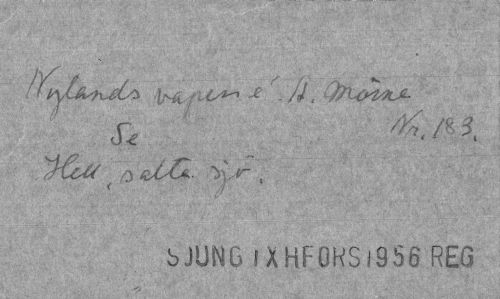 Nylands vapen é. A. Mörne
Nr. 183.
Se
Hell, salta sjö.
SJUNG IX HFORS 1956 REG